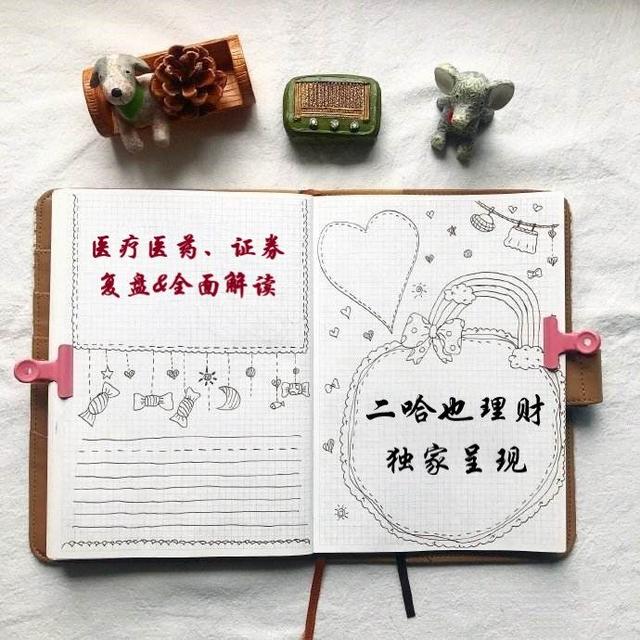 医疗医药、证券
复盘&全面解读
二哈也理财
独家呈现